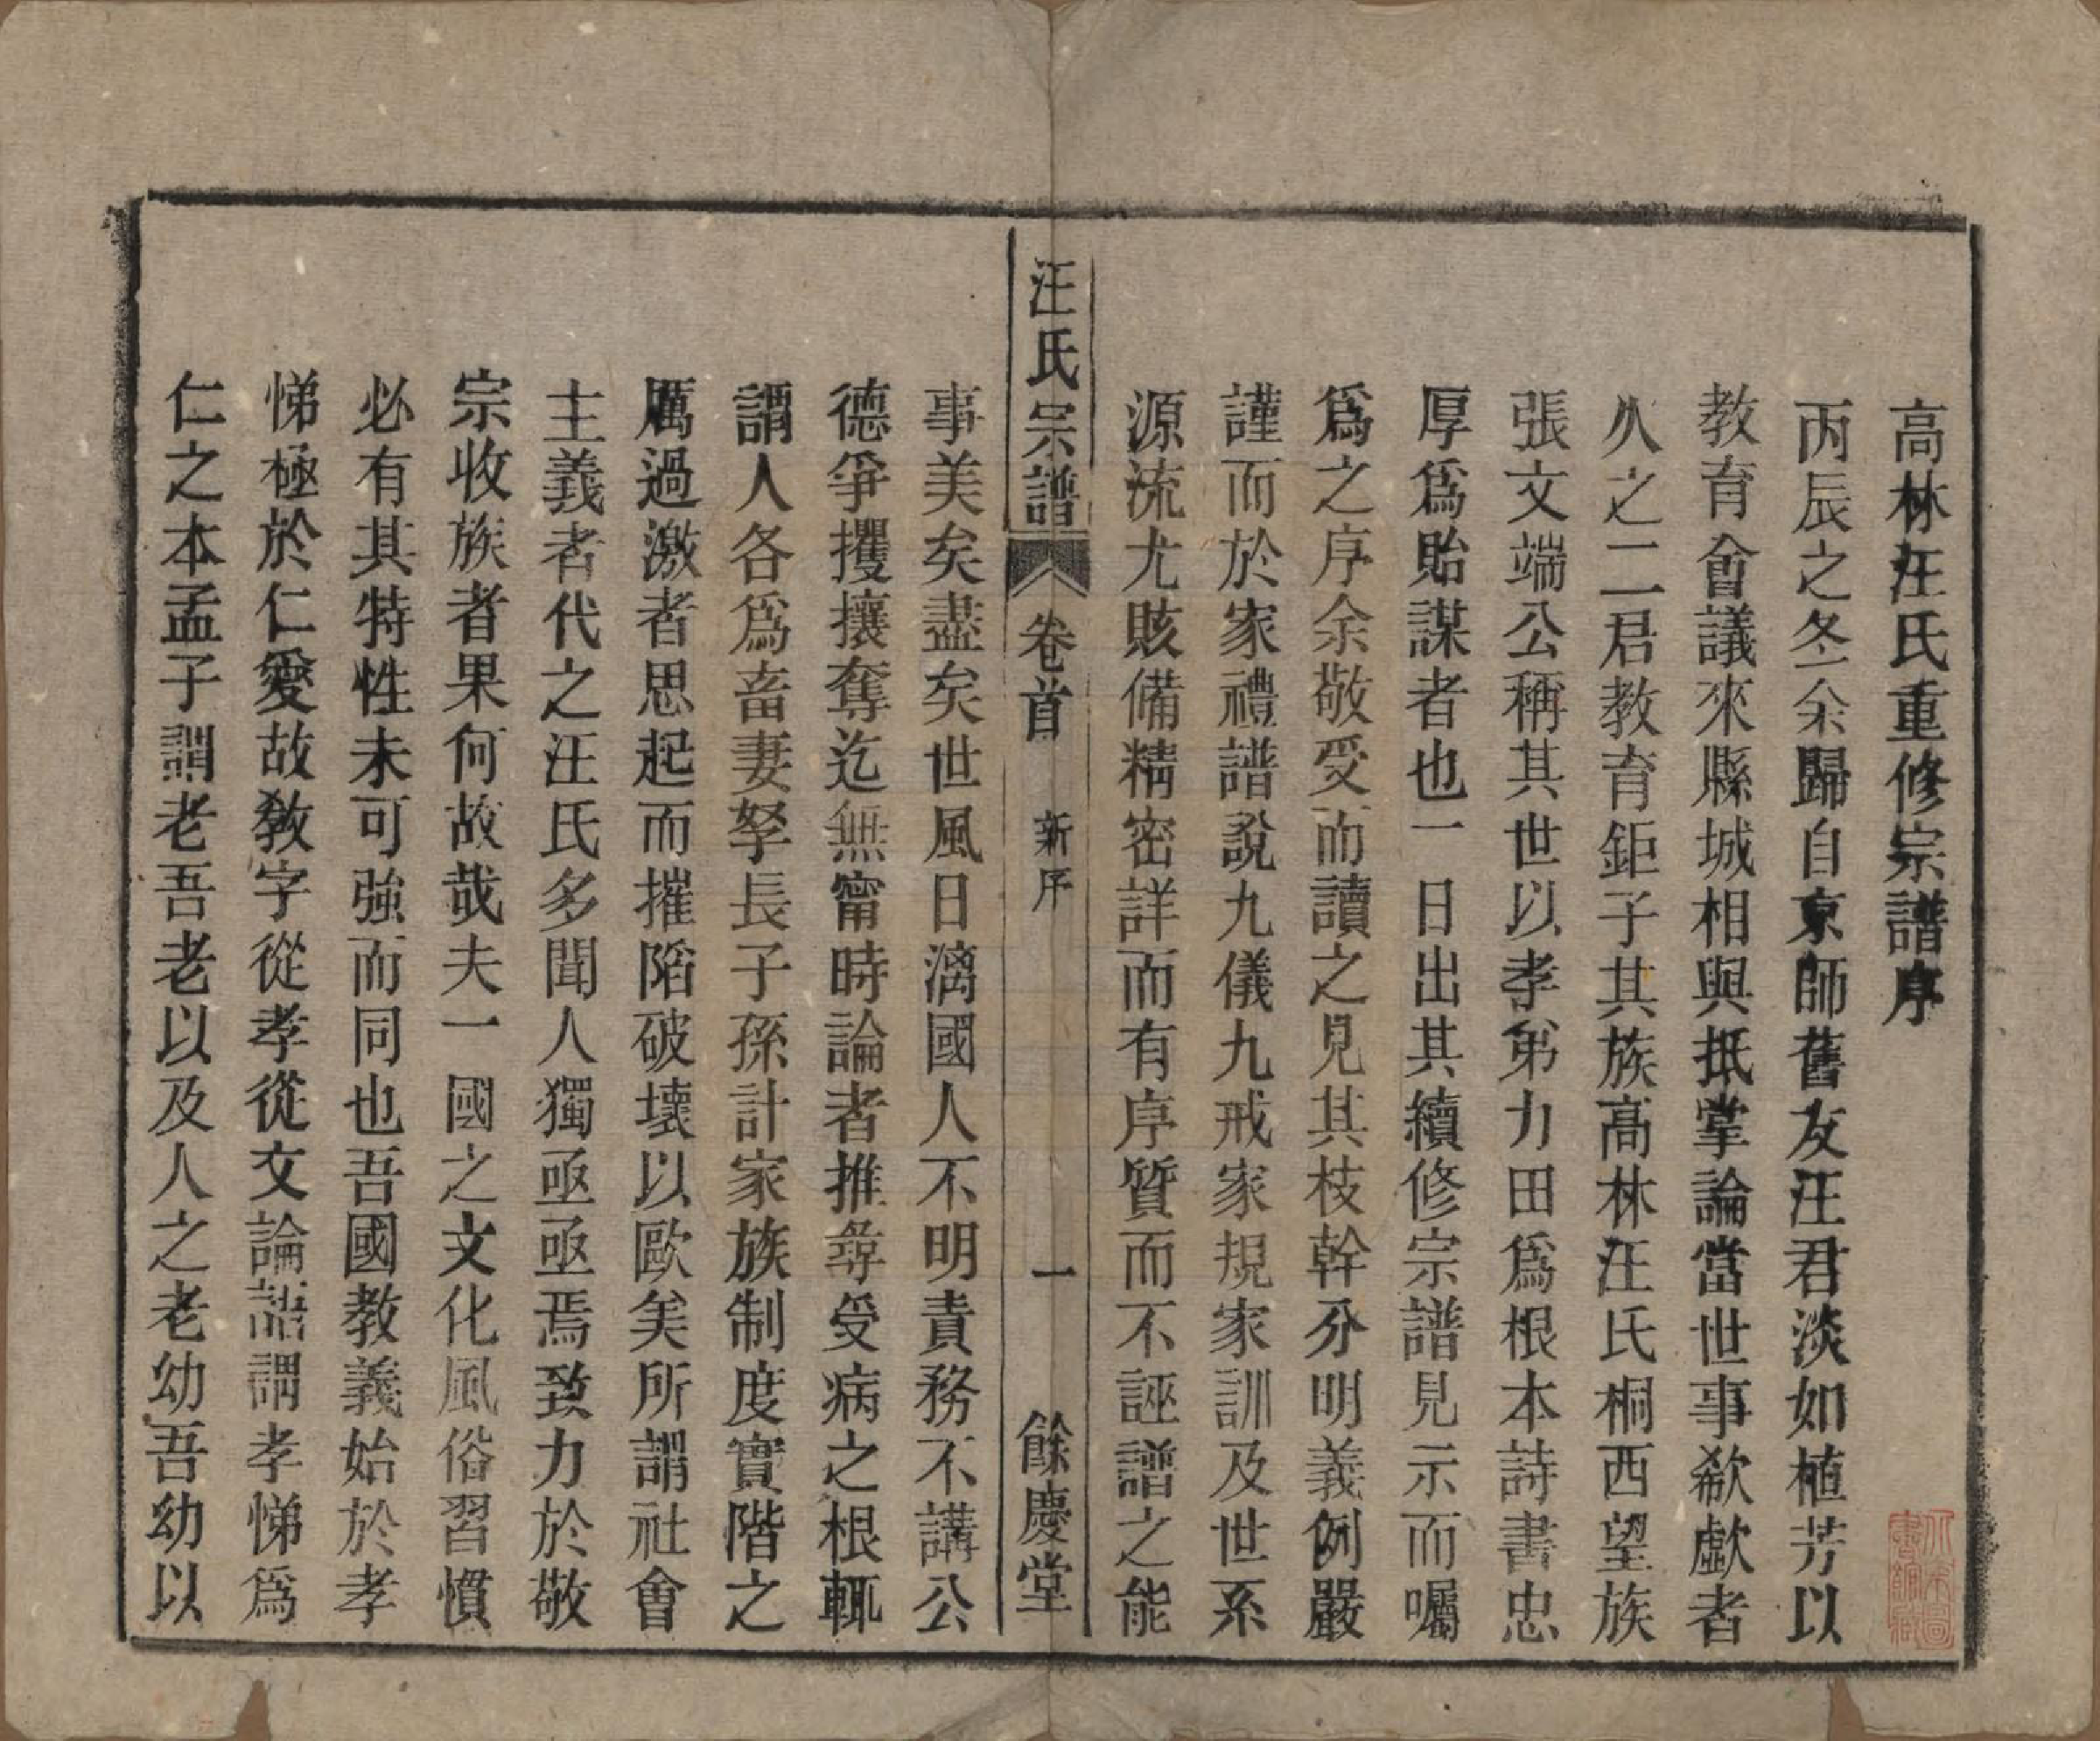 高林汪氏重修宗譜序
丙辰之冬余歸自京師舊友汪君淡如植芳以
教育會議來縣城相與抵掌論當世事欷歔者
久之二君教育鉅子其族高林汪氏桐西望族
張文端公稱其世以孝弟力田爲根本詩書忠
厚爲貽謀者也一日出其續修宗譜見示而囑
爲之序余敬受而讀之見其枝幹分明義例嚴
謹而於家禮譜說九儀九戒家規家訓及世系
源流尤賅備精密詳而有序質而不誣譜之能
汪氏宗譜 卷首 新序 一 餘慶堂
事美矣盡矣世風日漓國人不明責務不講公
德爭攫攘奪迄無甯時論者推尋受病之根輒
謂人各爲畜妻孥長子孫計家族制度實階之
厲過激者思起而摧陷破壞以歐美所謂社會
主義者代之汪氏多聞人獨亟亟焉致力於敬
宗收族者果何故哉夫一國之文化風俗習慣
必有其特性未可強而同也吾國教義始於孝
悌極於仁愛故敎字從孝從文論語謂孝悌爲
仁之本孟子謂老吾老以及人之老幼吾幼以